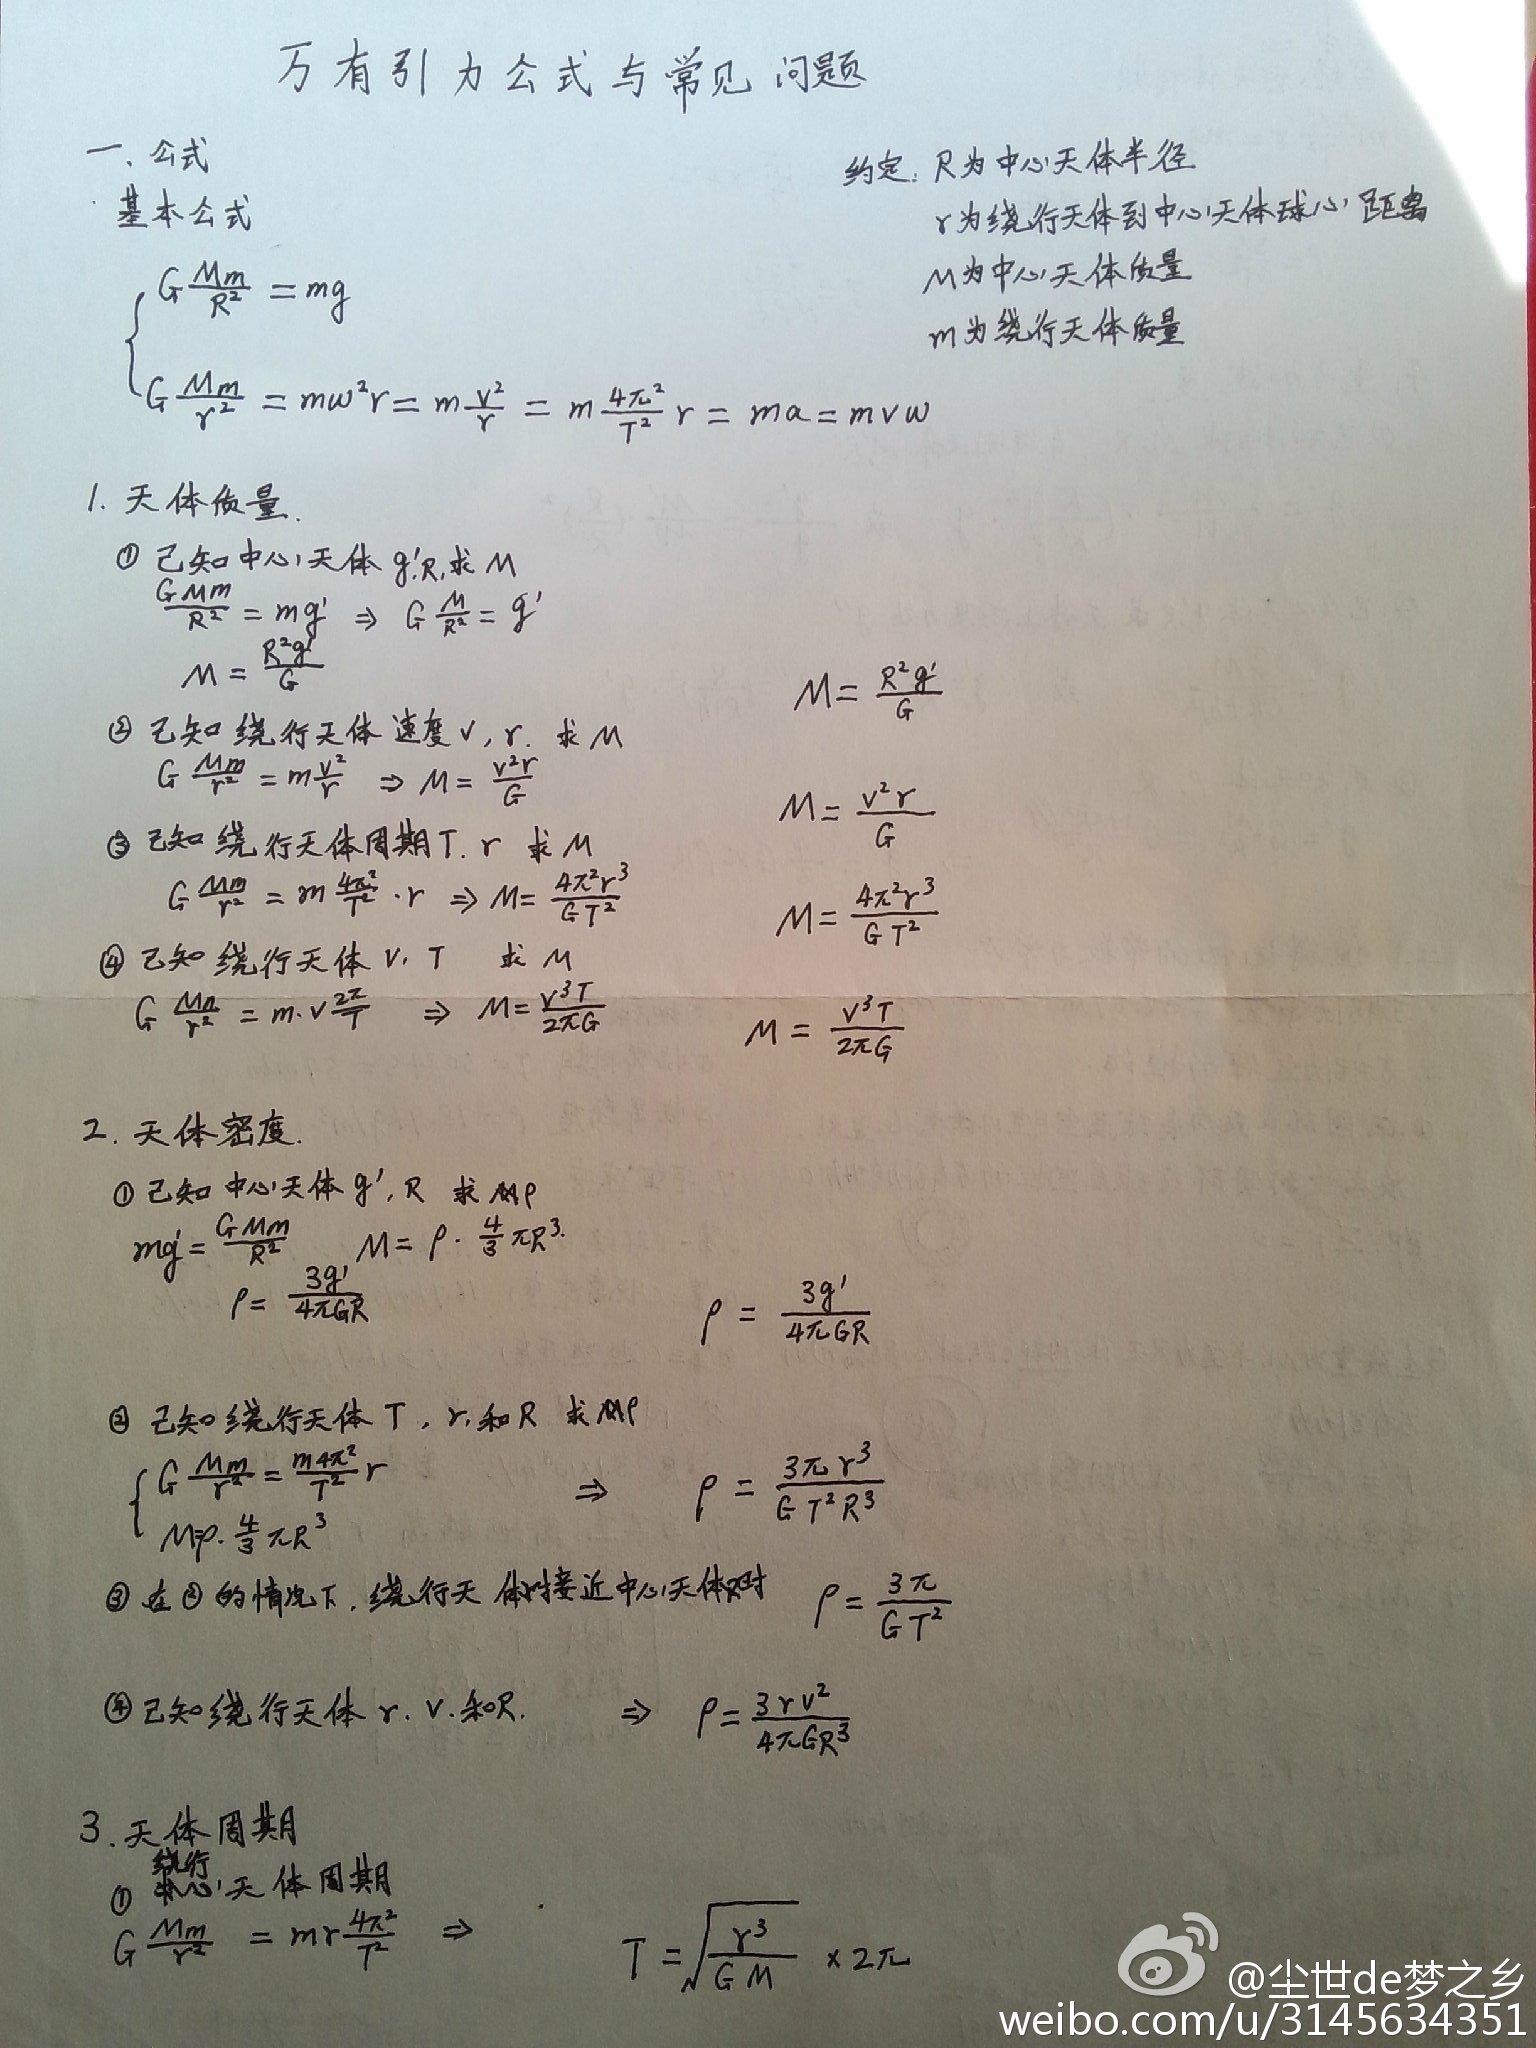 万有引力公式与常见问题
一、公式
约定: R为中心天体半径
基本公式
r为绕行天体到中心天体球心距离
M为中心天体质量
m为绕行天体质量
G Mm/R² = mg
G Mm/r² = mω²r = m v²/r = m 4π²/T² r = ma = mvω
1. 天体质量.
① 已知中心天体 g′,R,求M
GMm/R² = mg′ ⇒ G M/R² = g′
M = R²g′/G
M = R²g′/G
② 已知绕行天体速度v, r. 求M
G Mm/r² = m v²/r ⇒ M = v²r/G
M = v²r/G
③ 已知绕行天体周期T. r 求M
G Mm/r² = m 4π²/T² · r ⇒ M = 4π²r³/GT²
M = 4π²r³/GT²
④ 已知绕行天体v, T 求M
G Mm/r² = m·v 2π/T ⇒ M = v³T/2πG
M = v³T/2πG
2. 天体密度.
① 已知中心天体g′, R 求ρ
mg′ = GMm/R² M = ρ· 4/3 πR³.
ρ = 3g′/4πGR
ρ = 3g′/4πGR
② 已知绕行天体T, r, 和R 求ρ
G Mm/r² = m4π²/T² r
⇒ ρ = 3πr³/GT²R³
M=ρ· 4/3 πR³
③ 在②的情况下, 绕行天体接近中心天体时 ρ = 3π/GT²
④ 已知绕行天体r. v.和R. ⇒ ρ = 3rv²/4πGR³
3. 天体周期
① 绕行天体周期
G Mm/r² = mr 4π²/T² ⇒
T = √(r³/GM) × 2π
@尘世de梦之乡
weibo.com/u/3145634351